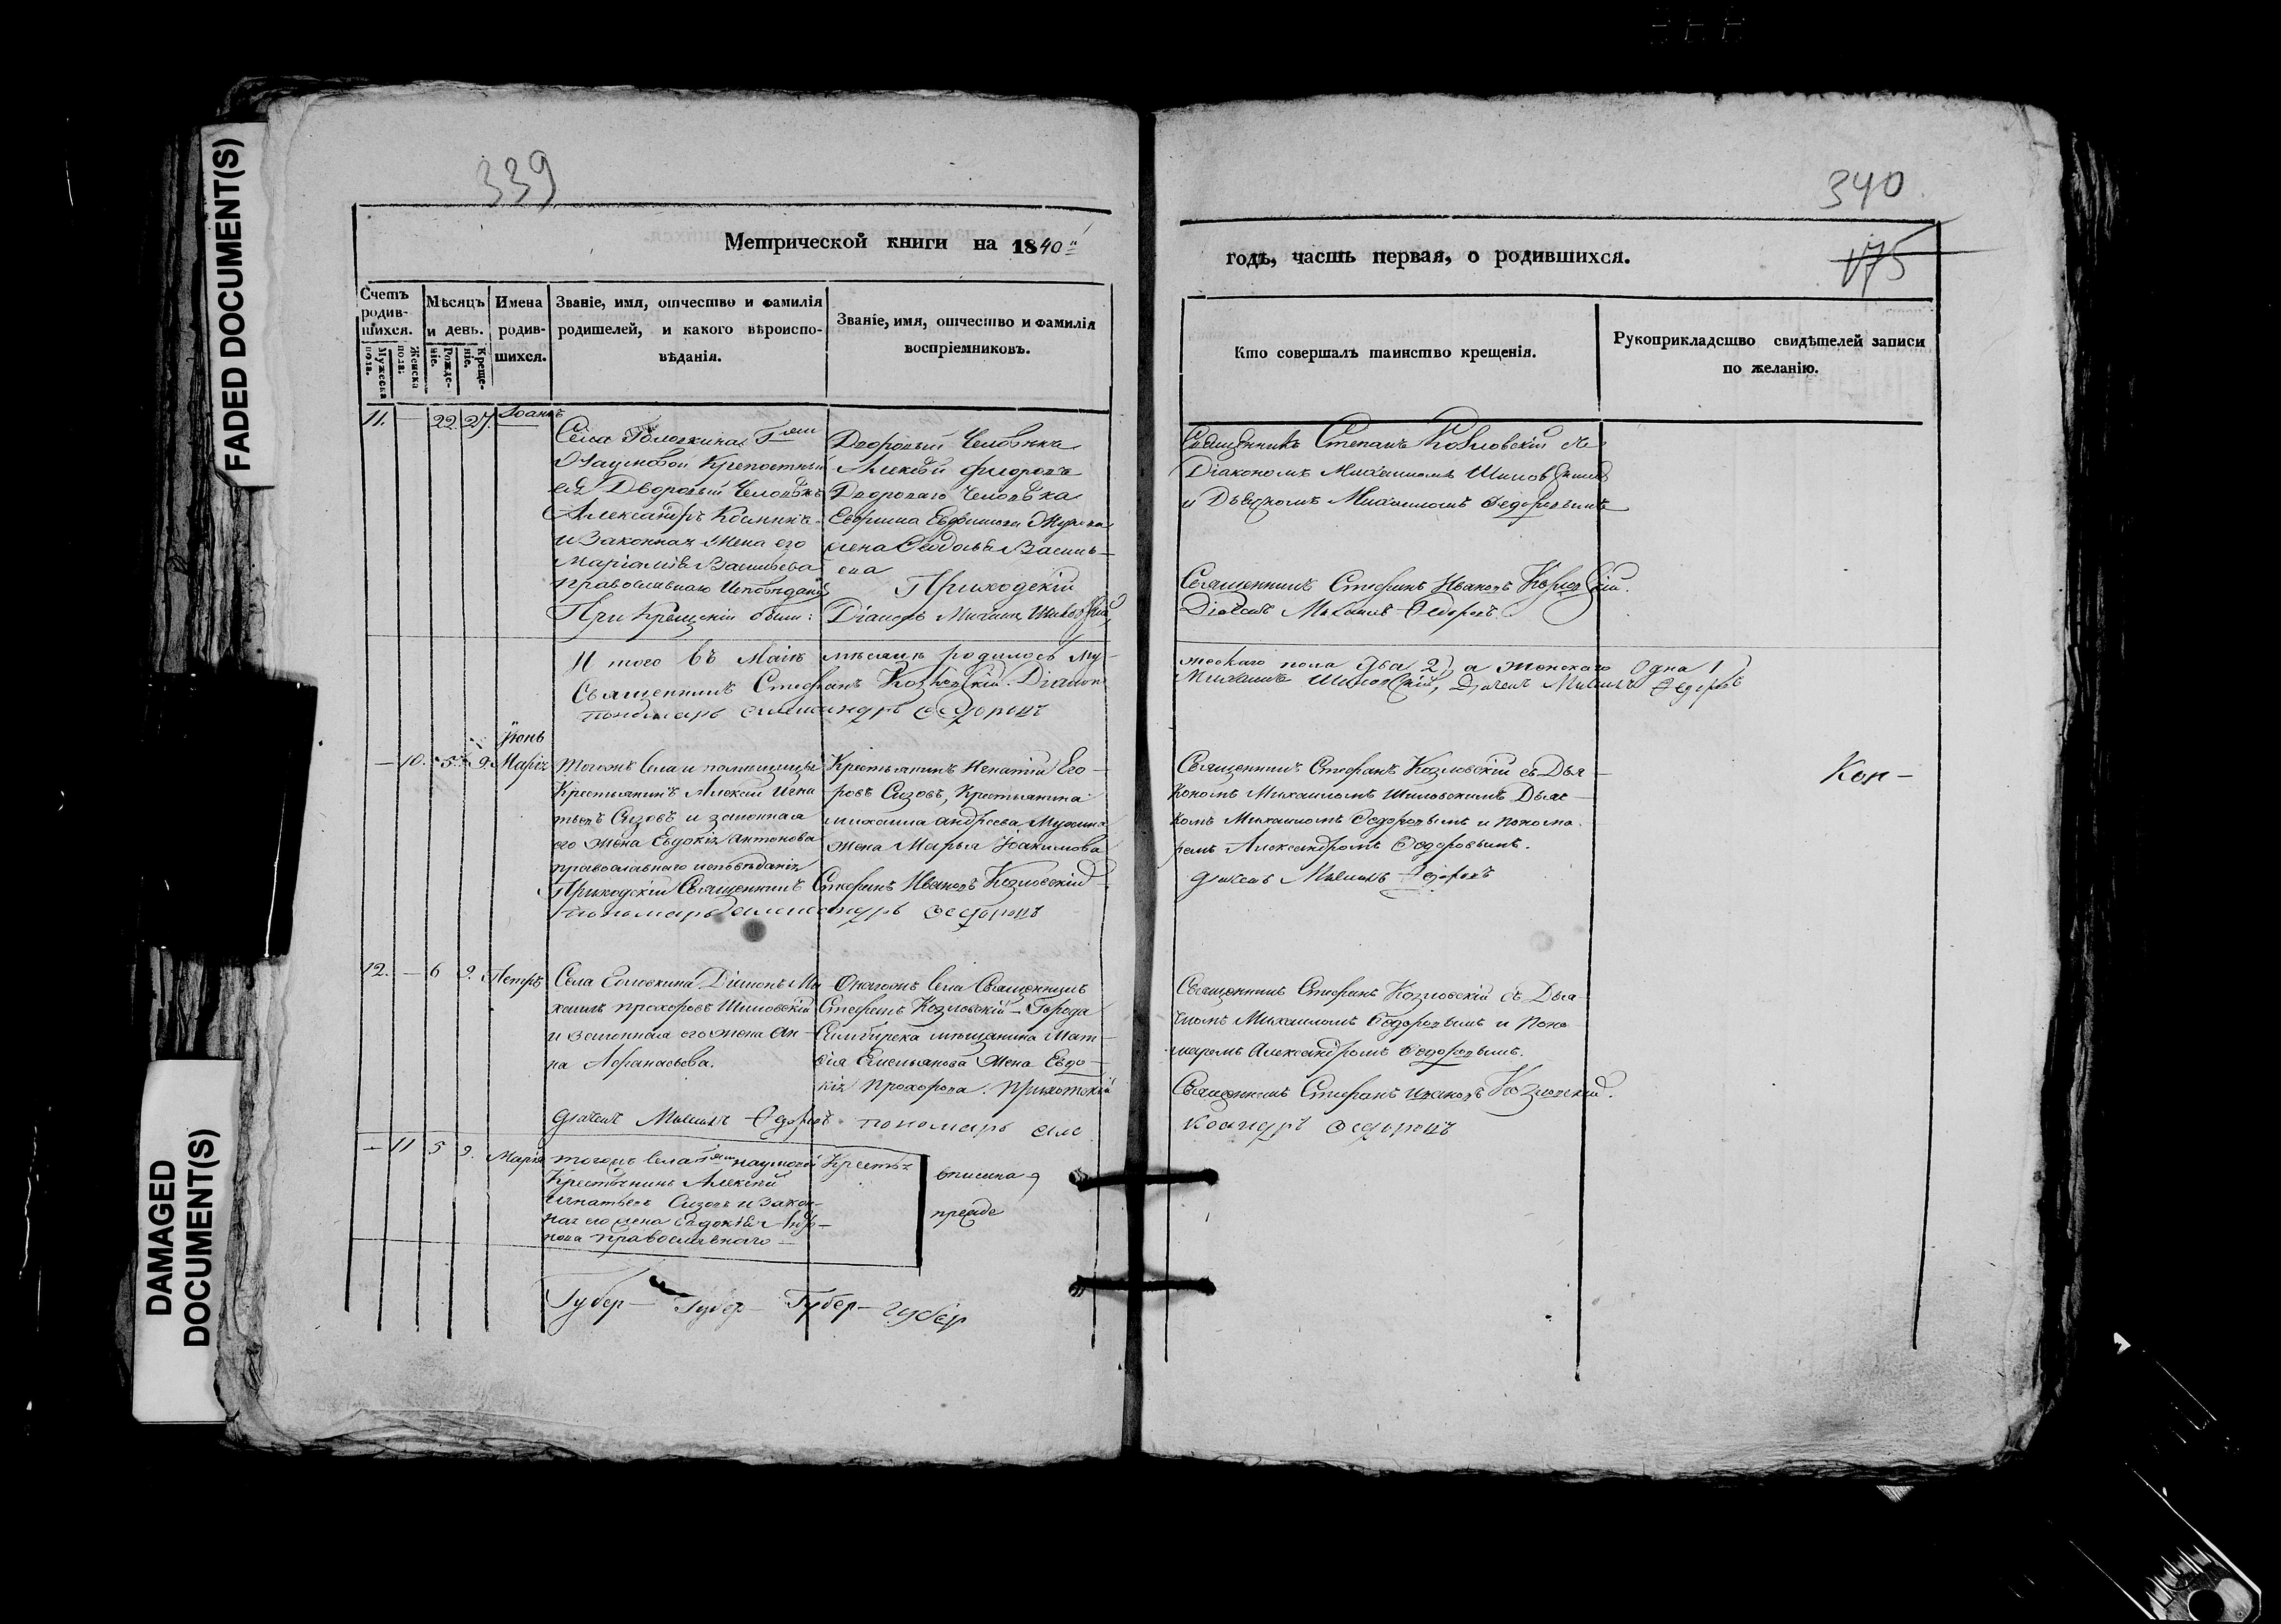 FADED DOCUMENT(S)
DAMAGED
DOCUMENT(S)
339
Метрической книги на 1840
Счетъ родившихся.
Мужеска пола.
Женска пола.
Мѣсяцъ и день.
Рожденіе.
Крещеніе.
Имена родившихся.
Званіе, имя, отчество и фамилія
родителей, и какого вѣроиспо-
вѣданія.
Званіе, имя, отчество и фамилія
воспріемниковъ.
11. — 22. 27. Іоаннъ
Села Головкина Г
крепостный
ея Дворовый Человѣкъ
Александръ
и Законная Жена его
Васильева
православнаго Исповѣданія
При Крещеніи были:
Дворовый Человѣкъ
Алексѣй Федоровъ
Двороваго Человѣка
жена Федосья Василь-
ева
Приходскій
Діаконъ Михаилъ Шиловскій
И того въ Маіѣ мѣсяцѣ родилось му-
Священникъ Стефанъ Козловскій. Діаконъ
пономарь Александръ Федоровъ
Іюнь
— 10. 5. 9. Марія
Тогожъ села и помещицы
Крестьянинъ Алексѣй Игна
тьевъ Сизовъ и законная
его жена Евдокія Антонова
православнаго исповѣданія
Крестьянинъ Игнатій Его-
ровъ Сизовъ, Крестьянина
Михаила Андреева Мухина
жена Марья Іоакимова
Приходскій Священникъ Стефанъ Ивановъ Козловскій
пономарь Александръ Федоровъ
12. — 6 9. Петръ
Села Головкина Діаконъ Ми
хаилъ Прохоровъ Шиловскій
и законная его жена Ан-
на Афанасьева.
Онагожъ села Священникъ
Стефанъ Козловскій – Города
Симбирска мѣщанина Мат-
Емельянова жена Евдо-
кія Прохорова. Приходскій
Дьячекъ Михаилъ Федоровъ пономарь Але
— 11 5 9. Марія
тогожъ села Наумовой Кресть
Крестьянинъ Алексѣй
Игнатьевъ Сизовъ и закон-
ная его жена Евдокія
православнаго
вписана
прежде
Губер— Губер— Губер— губер
340
175
годъ, часть первая, о родившихся.
Кто совершалъ таинство крещенія.
Рукоприкладство свидѣтелей записи
по желанію.
Священникъ Степанъ Козловскій съ
Діакономъ Михаиломъ Шиловскимъ
и Дьячкомъ Михаиломъ Федоровымъ
Священникъ Стефанъ Ивановъ Козловскій.
Дьячекъ Михаилъ Федоровъ
жескаго пола два 2, а женскаго одна 1
Михаилъ Шиловскій, Дьячекъ Михаилъ Федоровъ
Священникъ Стефанъ Козловскій съ Дья-
кономъ Михаиломъ Шиловскимъ Дьяч-
комъ Михаиломъ Федоровымъ и понома
ремъ Александромъ Федоровымъ.
Дьячекъ Михаилъ Федоровъ
Кон–
Священникъ Стефанъ Козловскій съ Дья
чкомъ Михаиломъ Федоровымъ и Поно
маремъ Александромъ Федоровымъ.
Священникъ Стефанъ Ивановъ Козловскій.
ксандръ Федоровъ